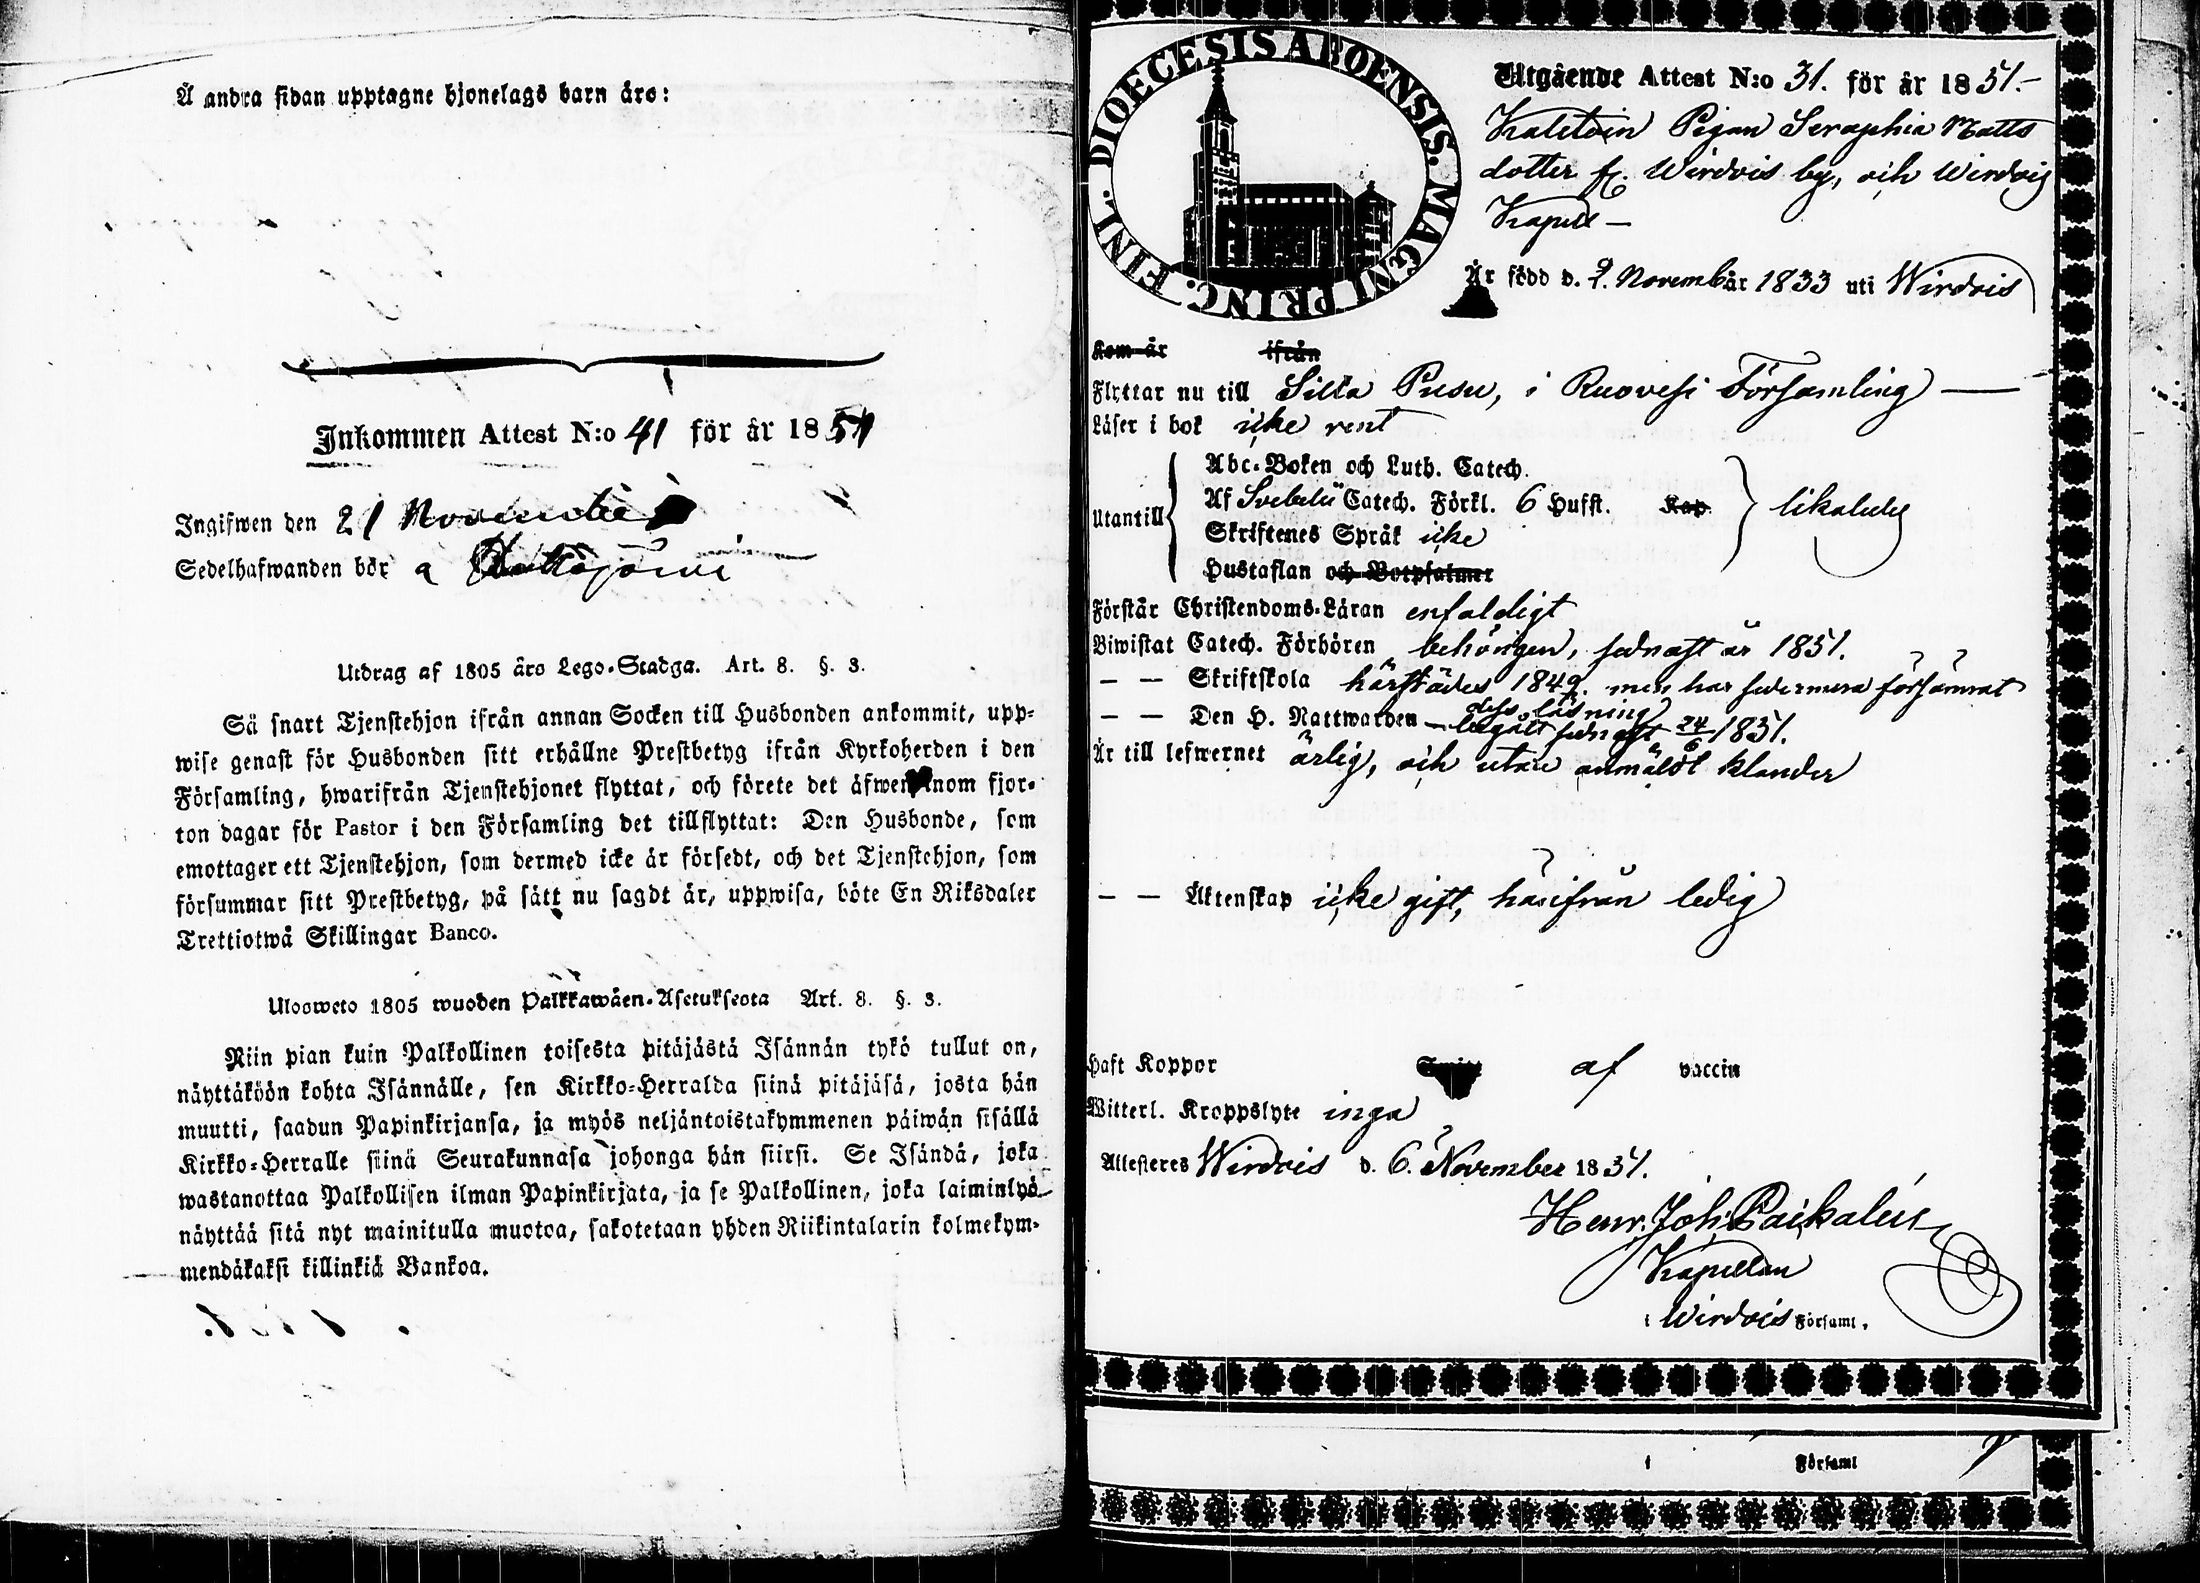 Å andra sidan upptagne hjonelags barn äro:
Inkommen Attest N:o 41 för år 1851
Ingifwen den 21 November
Sedelhafwanden bör
Utdrag af 1805 års Lego-Stadga. Art. 8. §. 3.
Så snart Tjenstehjon ifrån annan Socken till Husbonden ankommit, upp-
wise genast för Husbonden sitt erhållne Prestbetyg ifrån Kyrkoherden i den
Församling, hwarifrån Tjenstehjonet flyttat, och förete det äfwen inom fjor-
ton dagar för Pastor i den Församling det tillflyttat: Den Husbonde, som
emottager ett Tjenstehjon, som dermed icke är försedt, och det Tjenstehjon, som
försummar sitt Prestbetyg, på sätt nu sagdt är, uppwisa, böte En Riksdaler
Trettiotwå Skillingar Banco.
Ulosweto 1805 wuoden Palkkawäen-Asetuksesta Art. 8. §. 3.
Niin pian kuin Palkollinen toisesta pitäjästä Isännän tykö tullut on,
näyttäköön kohta Isännälle, sen Kirkko-Herralda siinä pitäjäsä, josta hän
muutti, saadun Papinkirjansa, ja myös neljäntoistakymmenen päiwän sisällä
Kirkko-Herralle siinä Seurakunnasa johonga hän siirsi. Se Isändä, joka
wastanottaa Palkollisen ilman Papinkirjata, ja se Palkollinen, joka laiminlyö
näyttää sitä nyt mainitulla muotoa, sakotetaan yhden Riikintalarin kolmekym-
mendäkaksi killinkiä Bankoa.
DIOECESIS ABOENSIS. MAGNI PRINC. FINL.
Utgående Attest N:o 31. för år 1851.-
Pigan Seraphia Matts
dotter fr. Wirdois by, och Wirdois
Kapell -
Är född d. 9. Novembår 1833 uti Wirdois
Kom år ifrån
Flyttar nu till Silla Pusu, i Ruovesi Församling
Läser i bok icke rent
Utantill
Abc-Boken och Luth. Catech.
Af Svebelii Catech. Förkl. 6 Hufst. Kap. likaledes
Skriftenes Språk icke
Hustaflan och Botpsalmer
Förstår Christendoms-Läran enfaldigt
Biwistat Catech. Förhören behörigen, sednast år 1851.
— — Skriftskola härstädes 1849. men har sedermera försämrat
dess läsning
— — Den H. Nattwarden - begått sednast 24/6 1851.
Är till lefwernet ärlig, och utan anmäldt klander
— — Äktenskap icke gift, härifrån ledig
Haft Koppor af vaccin
Witterl. Kroppslyte inga
Attesteres Wirdois d. 6. November 1851.
Henr. Joh. Paikalén
Kapellan
i Wirdois Församl.
i Församl